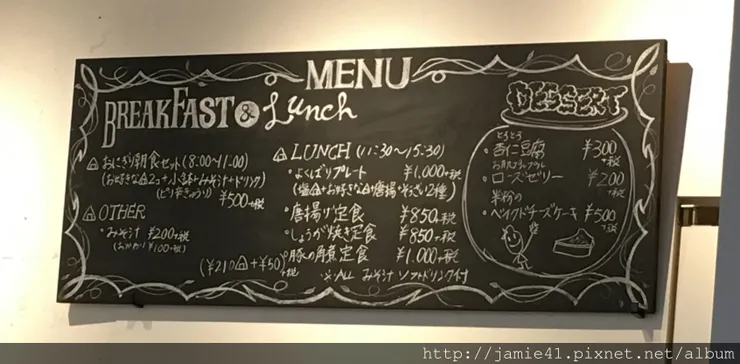 MENU
BREAKFAST & Lunch
おにぎり朝食セット(8:00~11:00)
(お好きな 2コ+小鉢+みそ汁+ドリンク)
¥500+税
OTHER
・みそ汁 ¥200+税
(おかわり ¥100+税)
LUNCH (11:30~15:30)
・よくばりプレート ¥1,000+税
(塩 +お好きな +唐揚+そうざい2種)
・唐揚げ定食 ¥850+税
・しょうが焼き定食 ¥850+税
・豚の角煮定食 ¥1,000+税
(¥210 +¥50)+税
※ALL みそ汁 ソフトドリンク付
DESSERT
とろとろ
・杏仁豆腐 ¥300+税
・ローズゼリー ¥200+税
米粉の
・ベイクドチーズケーキ ¥500+税
http://jamie41.pixnet.net/album